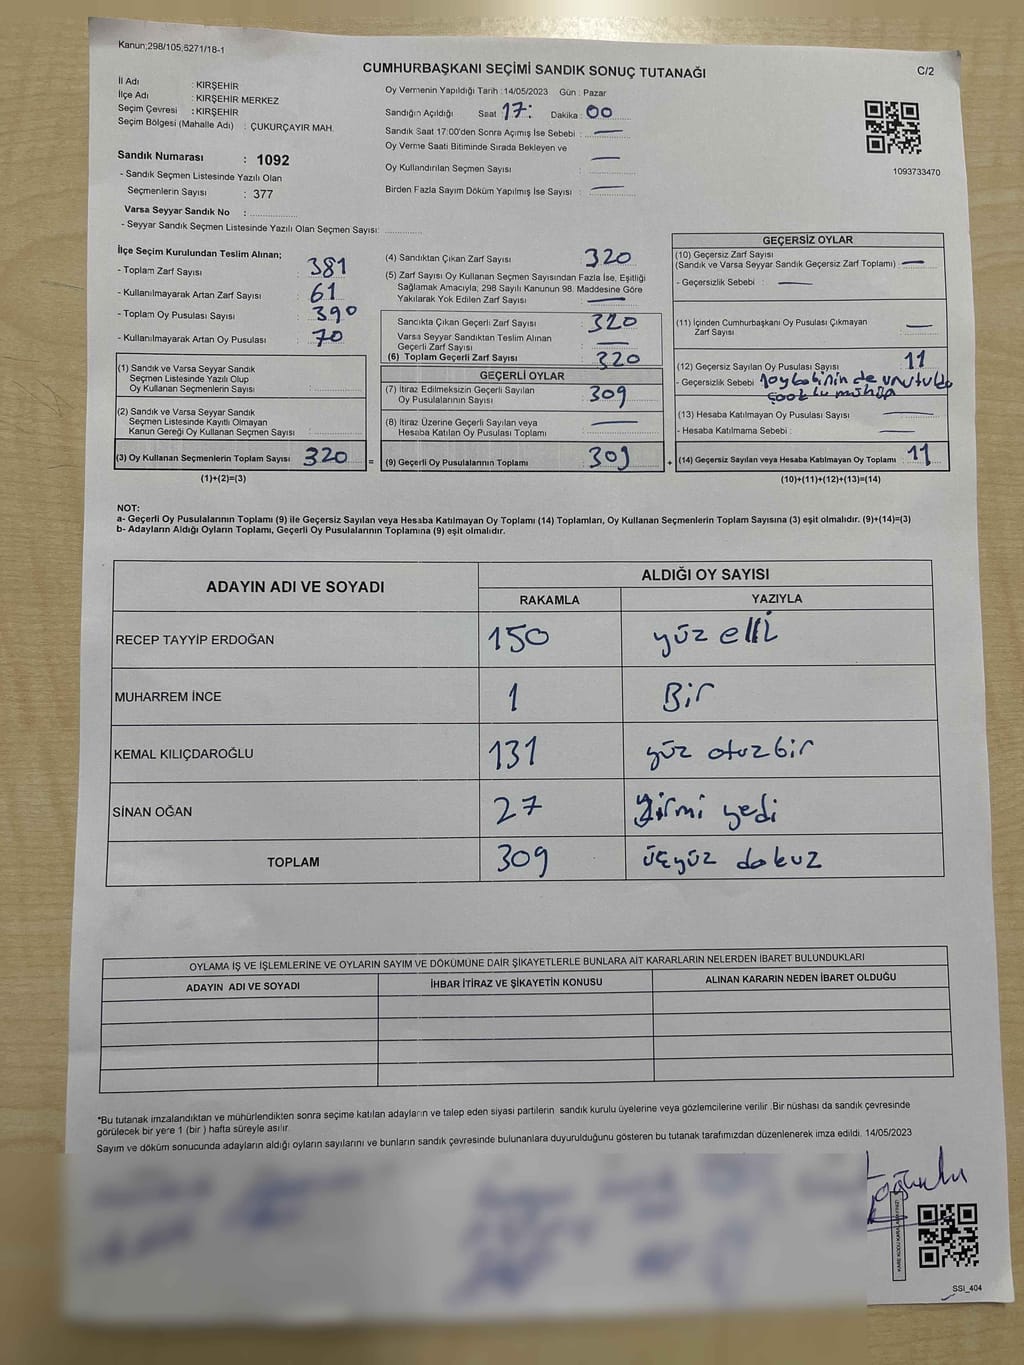 Kanun;298/105;5271/18-1
CUMHURBAŞKANI SEÇİMİ SANDIK SONUÇ TUTANAĞI
C/2
İl Adı : KIRŞEHİR
İlçe Adı : KIRŞEHİR MERKEZ
Seçim Çevresi : KIRŞEHİR
Seçim Bölgesi (Mahalle Adı) : ÇUKURÇAYIR MAH.
Sandık Numarası : 1092
- Sandık Seçmen Listesinde Yazılı Olan
Seçmenlerin Sayısı : 377
Varsa Seyyar Sandık No :
- Seyyar Sandık Seçmen Listesinde Yazılı Olan Seçmen Sayısı:
Oy Vermenin Yapıldığı Tarih : 14/05/2023 Gün : Pazar
Sandığın Açıldığı Saat 17: Dakika : 00
Sandık Saat 17:00'den Sonra Açımış İse Sebebi : —
Oy Verme Saati Bitiminde Sırada Bekleyen ve
Oy Kullandırılan Seçmen Sayısı : —
Birden Fazla Sayım Döküm Yapılmış İse Sayısı : —
1093733470
İlçe Seçim Kurulundan Teslim Alınan;
- Toplam Zarf Sayısı : 381
- Kullanılmayarak Artan Zarf Sayısı : 61
- Toplam Oy Pusulası Sayısı : 390
- Kullanılmayarak Artan Oy Pusulası : 70
(1) Sandık ve Varsa Seyyar Sandık
Seçmen Listesinde Yazılı Olup
Oy Kullanan Seçmenlerin Sayısı :
(2) Sandık ve Varsa Seyyar Sandık
Seçmen Listesinde Kayıtlı Olmayan
Kanun Gereği Oy Kullanan Seçmen Sayısı :
(3) Oy Kullanan Seçmenlerin Toplam Sayısı 320 =
(1)+(2)=(3)
(4) Sandıktan Çıkan Zarf Sayısı : 320
(5) Zarf Sayısı Oy Kullanan Seçmen Sayısından Fazla İse, Eşitliği
Sağlamak Amacıyla; 298 Sayılı Kanunun 98. Maddesine Göre
Yakılarak Yok Edilen Zarf Sayısı : —
Sandıkta Çıkan Geçerli Zarf Sayısı : 320
Varsa Seyyar Sandıktan Teslim Alınan
Geçerli Zarf Sayısı : —
(6) Toplam Geçerli Zarf Sayısı : 320
GEÇERLİ OYLAR
(7) İtiraz Edilmeksizin Geçerli Sayılan
Oy Pusulalarının Sayısı : 309
(8) İtiraz Üzerine Geçerli Sayılan veya
Hesaba Katılan Oy Pusulası Toplamı : —
(9) Geçerli Oy Pusulalarının Toplamı : 309 +
GEÇERSİZ OYLAR
(10) Geçersiz Zarf Sayısı
(Sandık ve Varsa Seyyar Sandık Geçersiz Zarf Toplamı) : —
- Geçersizlik Sebebi : —
(11) İçinden Cumhurbaşkanı Oy Pusulası Çıkmayan
Zarf Sayısı : —
(12) Geçersiz Sayılan Oy Pusulası Sayısı : 11
- Geçersizlik Sebebi 1 oy kabinin de unutuldu
(13) Hesaba Katılmayan Oy Pusulası Sayısı : —
- Hesaba Katılmama Sebebi : —
(14) Geçersiz Sayılan veya Hesaba Katılmayan Oy Toplamı : 11
(10)+(11)+(12)+(13)=(14)
NOT:
a- Geçerli Oy Pusulalarının Toplamı (9) ile Geçersiz Sayılan veya Hesaba Katılmayan Oy Toplamı (14) Toplamları, Oy Kullanan Seçmenlerin Toplam Sayısına (3) eşit olmalıdır. (9)+(14)=(3)
b- Adayların Aldığı Oyların Toplamı, Geçerli Oy Pusulalarının Toplamına (9) eşit olmalıdır.
ADAYIN ADI VE SOYADI
ALDIĞI OY SAYISI
RAKAMLA YAZIYLA
RECEP TAYYİP ERDOĞAN 150 yüz elli
MUHARREM İNCE 1 Bir
KEMAL KILIÇDAROĞLU 131 yüz otuzbir
SİNAN OĞAN 27 yirmi yedi
TOPLAM 309 üçyüz dokuz
OYLAMA İŞ VE İŞLEMLERİNE VE OYLARIN SAYIM VE DÖKÜMÜNE DAİR ŞİKAYETLERLE BUNLARA AİT KARARLARIN NELERDEN İBARET BULUNDUKLARI
ADAYIN ADI VE SOYADI İHBAR İTİRAZ VE ŞİKAYETİN KONUSU ALINAN KARARIN NEDEN İBARET OLDUĞU
*Bu tutanak imzalandıktan ve mühürlendikten sonra seçime katılan adayların ve talep eden siyasi partilerin sandık kurulu üyelerine veya gözlemcilerine verilir .Bir nüshası da sandık çevresinde
görülecek bir yere 1 (bir ) hafta süreyle asılır.
Sayım ve döküm sonucunda adayların aldığı oyların sayılarını ve bunların sandık çevresinde bulunanlara duyurulduğunu gösteren bu tutanak tarafımızdan düzenlenerek imza edildi. 14/05/2023
SSI_404